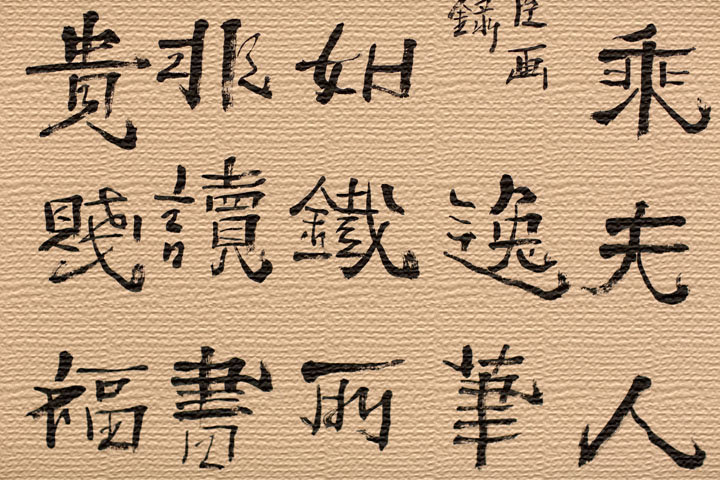 乘夫人
画
錄
逸筆
如鐵所
非讀書
貴賤福